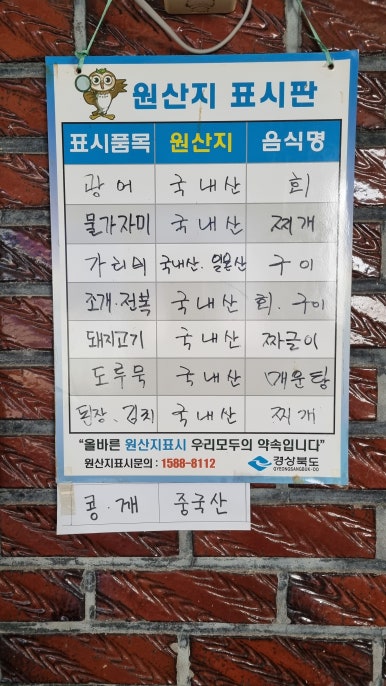 원산지 표시판
표시품목 원산지 음식명
광어 국내산 회
물가자미 국내산 찌개
가리비 국내산. 일본산 구이
조개.전복 국내산 회. 구이
돼지고기 국내산 짜글이
도루묵 국내산 매운탕
된장. 김치 국내산 찌개
"올바른 원산지표시 우리모두의 약속입니다"
원산지표시문의 : 1588-8112 경상북도
GYEONGSANGBUK-DO
콩.깨 중국산